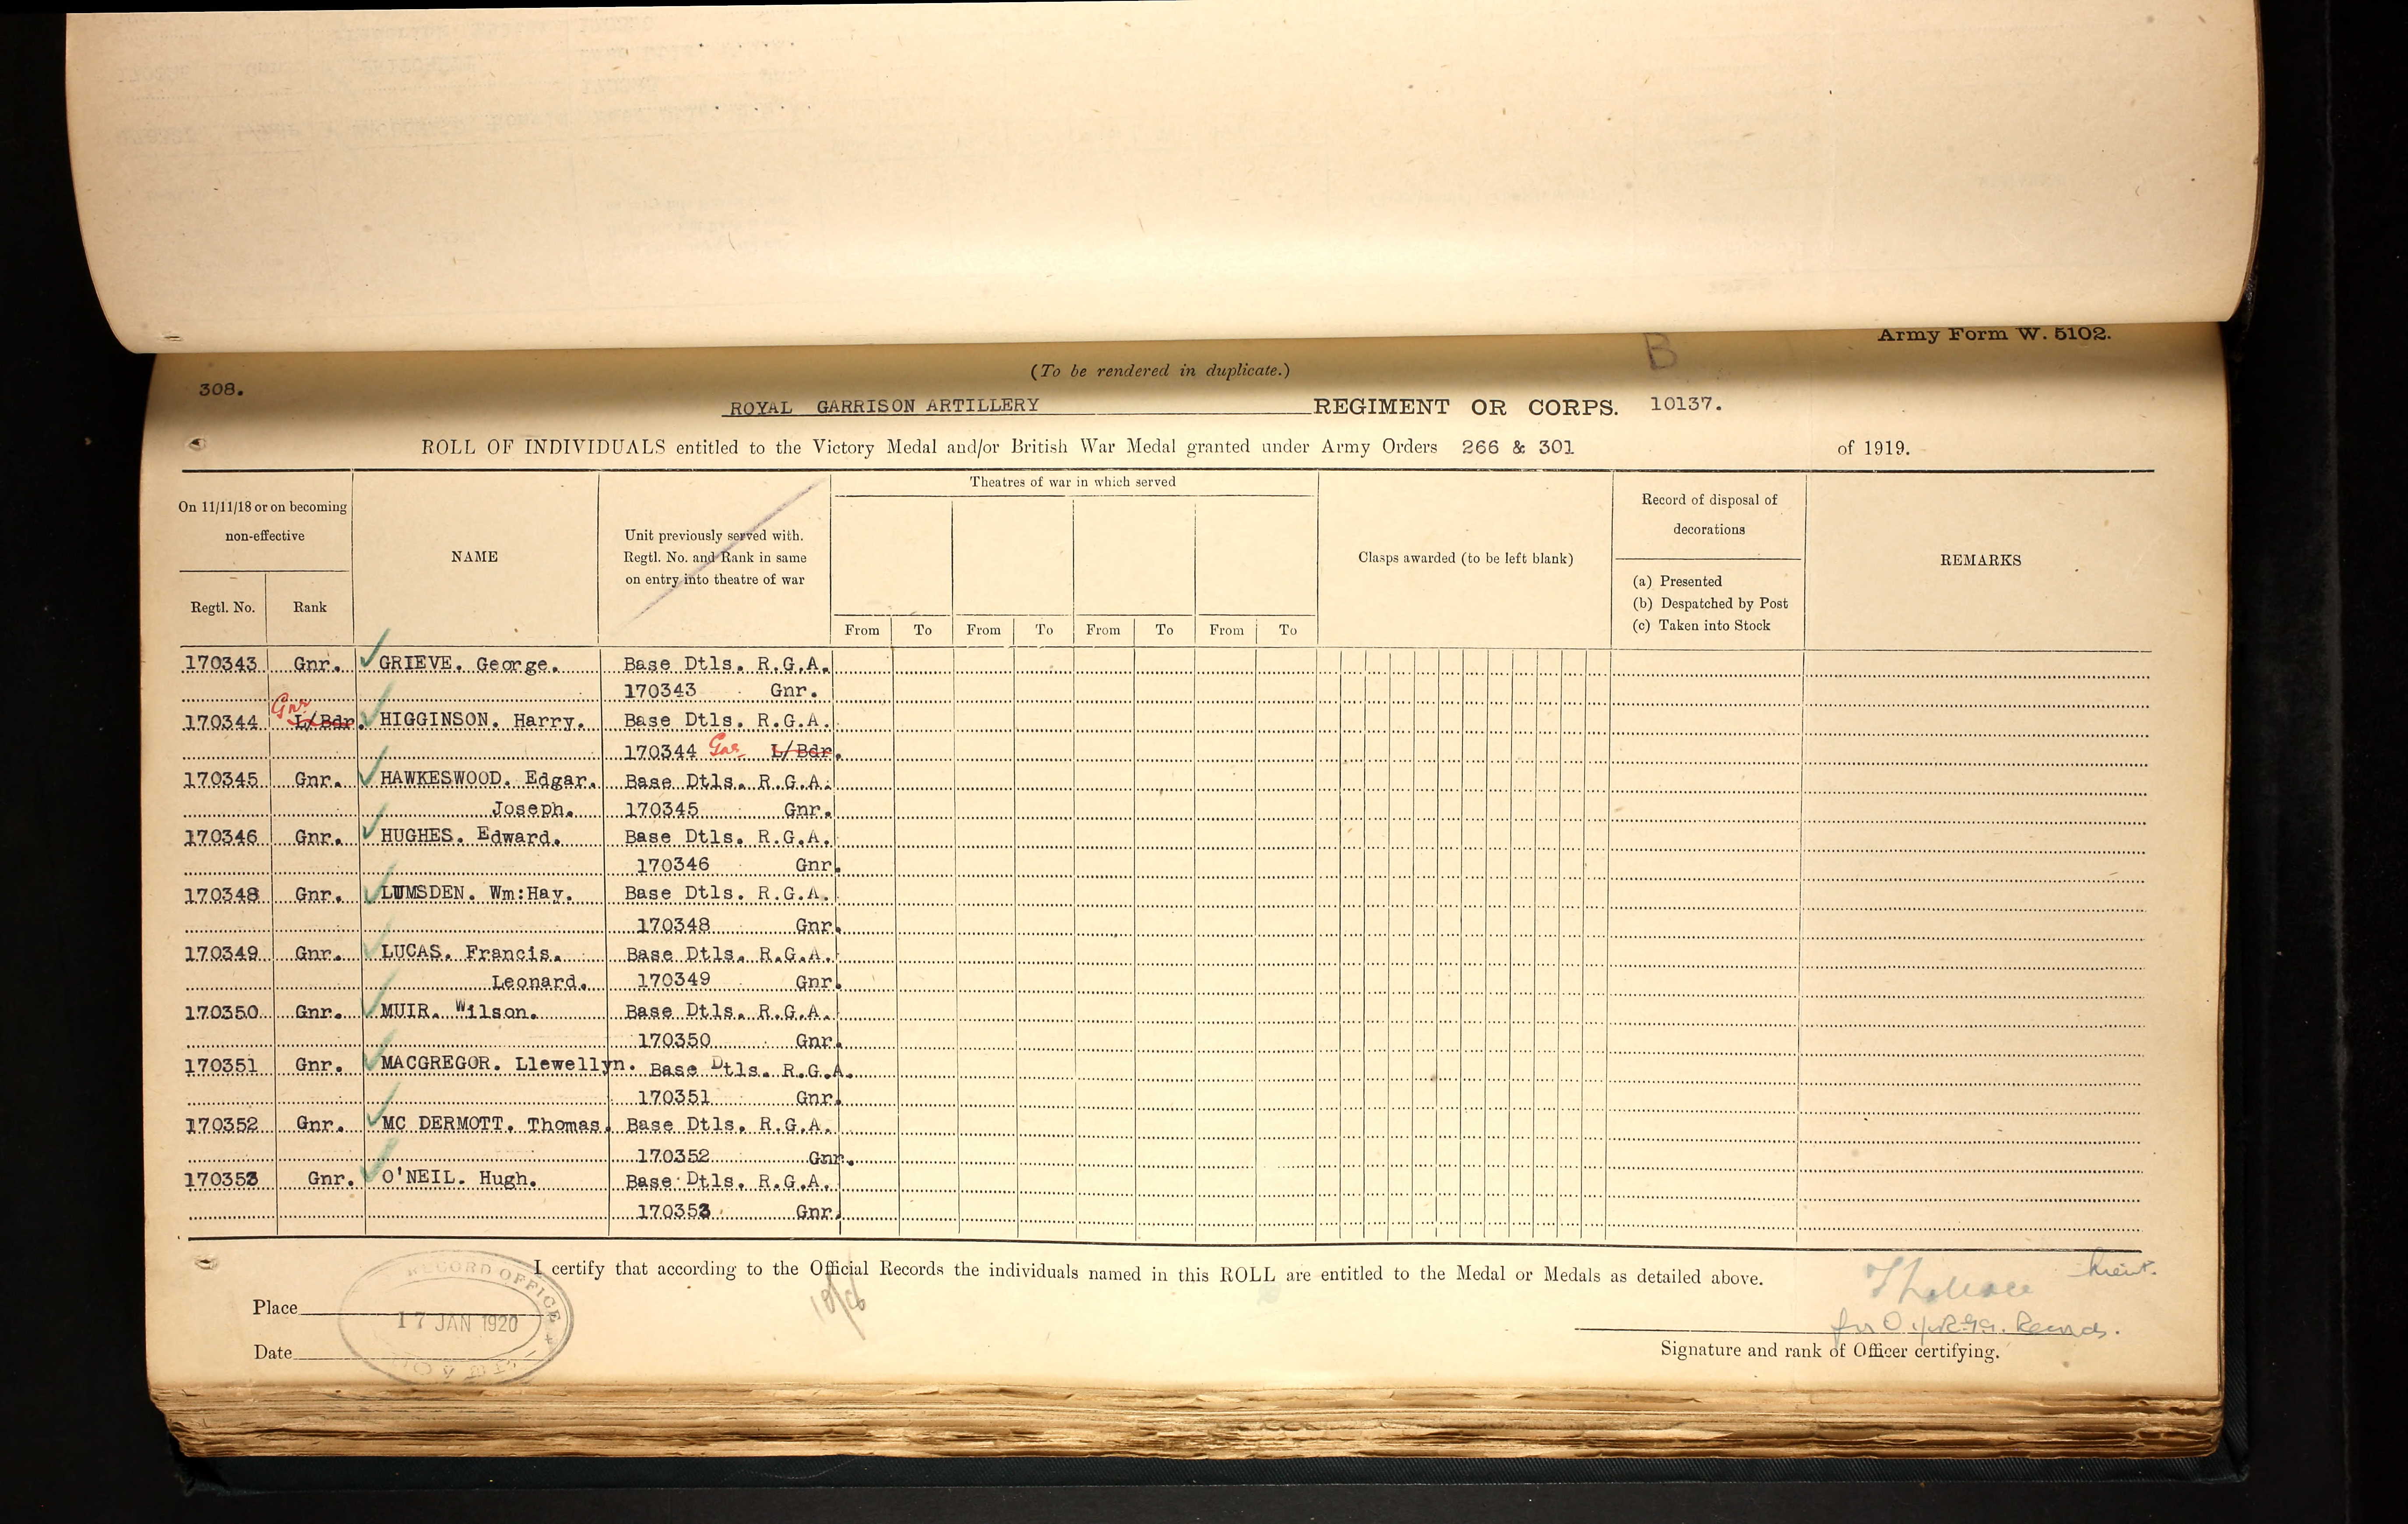 Army Form W. 5102.
B
(To be rendered in duplicate.)
308.
ROYAL GARRISON ARTILLERY REGIMENT OR CORPS. 10137.
ROLL OF INDIVIDUALS entitled to the Victory Medal and/or British War Medal granted under Army Orders 266 & 301 of 1919.
On 11/11/18 or on becoming
non-effective
Regtl. No. Rank
NAME
Unit previously served with.
Regtl. No. and Rank in same
on entry into theatre of war
Theatres of war in which served
From To From To From To From To
Clasps awarded (to be left blank)
Record of disposal of
decorations
(a) Presented
(b) Despatched by Post
(c) Taken into Stock
REMARKS
170343 Gnr. GRIEVE. George. Base Dtls. R.G.A.
170343 Gnr.
Gnr
170344 L/Bdr. HIGGINSON. Harry. Base Dtls. R.G.A.
170344 Gnr L/Bdr.
170345 Gnr. HAWKESWOOD. Edgar. Base Dtls. R.G.A.
Joseph. 170345 Gnr.
170346 Gnr. HUGHES. Edward. Base Dtls. R.G.A.
170346 Gnr.
170348 Gnr. LUMSDEN. Wm:Hay. Base Dtls. R.G.A.
170348 Gnr.
170349 Gnr. LUCAS. Francis. Base Dtls. R.G.A.
Leonard. 170349 Gnr.
170350 Gnr. MUIR. Wilson. Base Dtls. R.G.A.
170350 Gnr.
170351 Gnr. MACGREGOR. Llewellyn. Base Dtls. R.G.A.
170351 Gnr.
170352 Gnr. MC DERMOTT. Thomas. Base Dtls. R.G.A.
170352 Gnr.
170353 Gnr. O'NEIL. Hugh. Base Dtls. R.G.A.
170353 Gnr.
I certify that according to the Official Records the individuals named in this ROLL are entitled to the Medal or Medals as detailed above.
Place
Date
RECORD OFFICE
17 JAN 1920
DOVER
Lieut.
for O. i/c R.G.A. Records.
Signature and rank of Officer certifying.